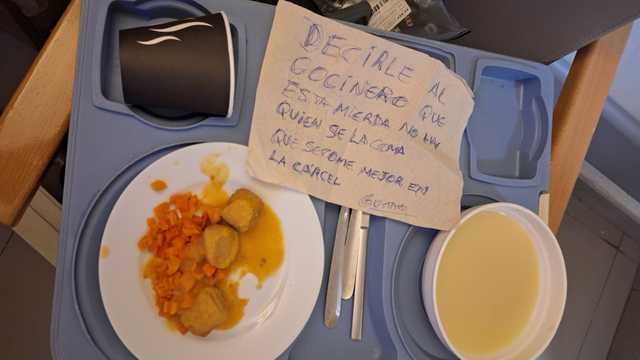 DECIRLE AL
COCINERO QUE
ESTA MIERDA NO HAY
QUIEN SE LA COMA
QUE SE COME MEJOR EN
LA CÁRCEL